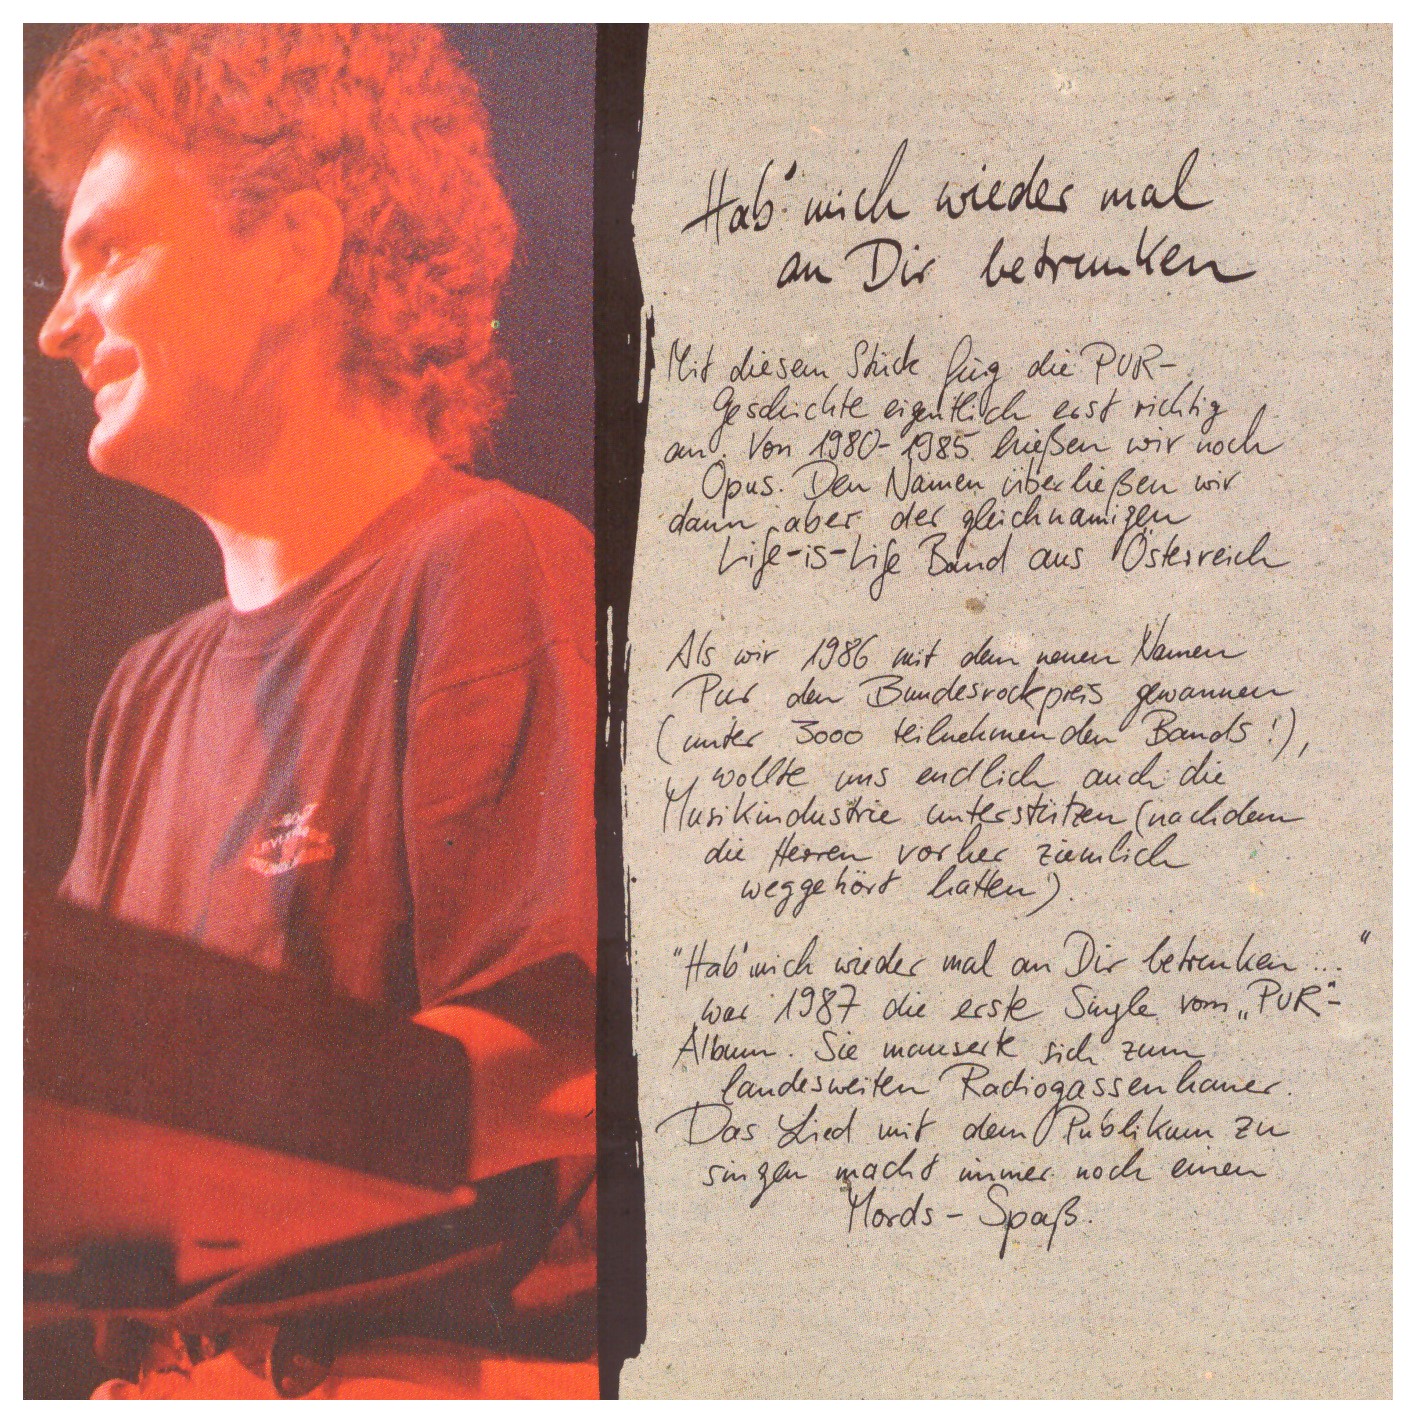 Hab' mich wieder mal
an Dir betrunken
Mit diesem Stück fing die PUR-
Geschichte eigentlich erst richtig
an. Von 1980-1985 hießen wir noch
Opus. Den Namen überließen wir
dann aber der gleichnamigen
Life-is-Life Band aus Österreich
Als wir 1986 mit dem neuen Namen
Pur den Bundesrockpreis gewannen
(unter 3000 teilnehmenden Bands!),
wollte uns endlich auch die
Musikindustrie unterstützen (nachdem
die Herren vorher ziemlich
weggehört hatten).
"Hab' mich wieder mal an Dir betrunken..."
war 1987 die erste Single vom „PUR"-
Album. Sie mauserte sich zum
landesweiten Radiogassenhauer.
Das Lied mit dem Publikum zu
singen macht immer noch einen
Mords-Spaß.